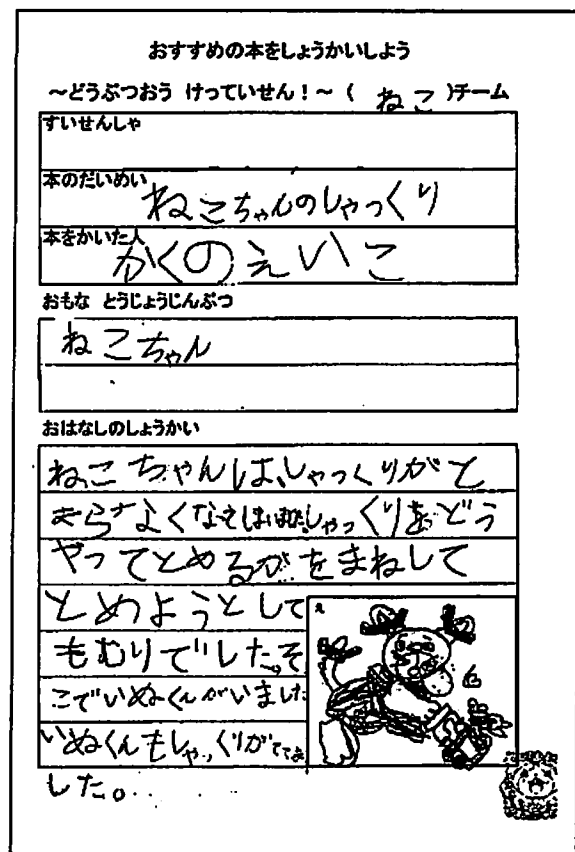 おすすめの本をしょうかいしよう
～どうぶつおう けっていせん！～（ ねこ ）チーム
すいせんしゃ
本のだいめい
ねこちゃんのしゃっくり
本をかいた人
かくのえいこ
おもな とうじょうじんぶつ
ねこちゃん
おはなしのしょうかい
ねこちゃんは、しゃっくりがと
まらなくなしゃっくりをどう
やってとめるかをまねして
とめようとして
もむりでした。そ
こでいぬくんがいました
いぬくんもしゃっくりがでてま
した。